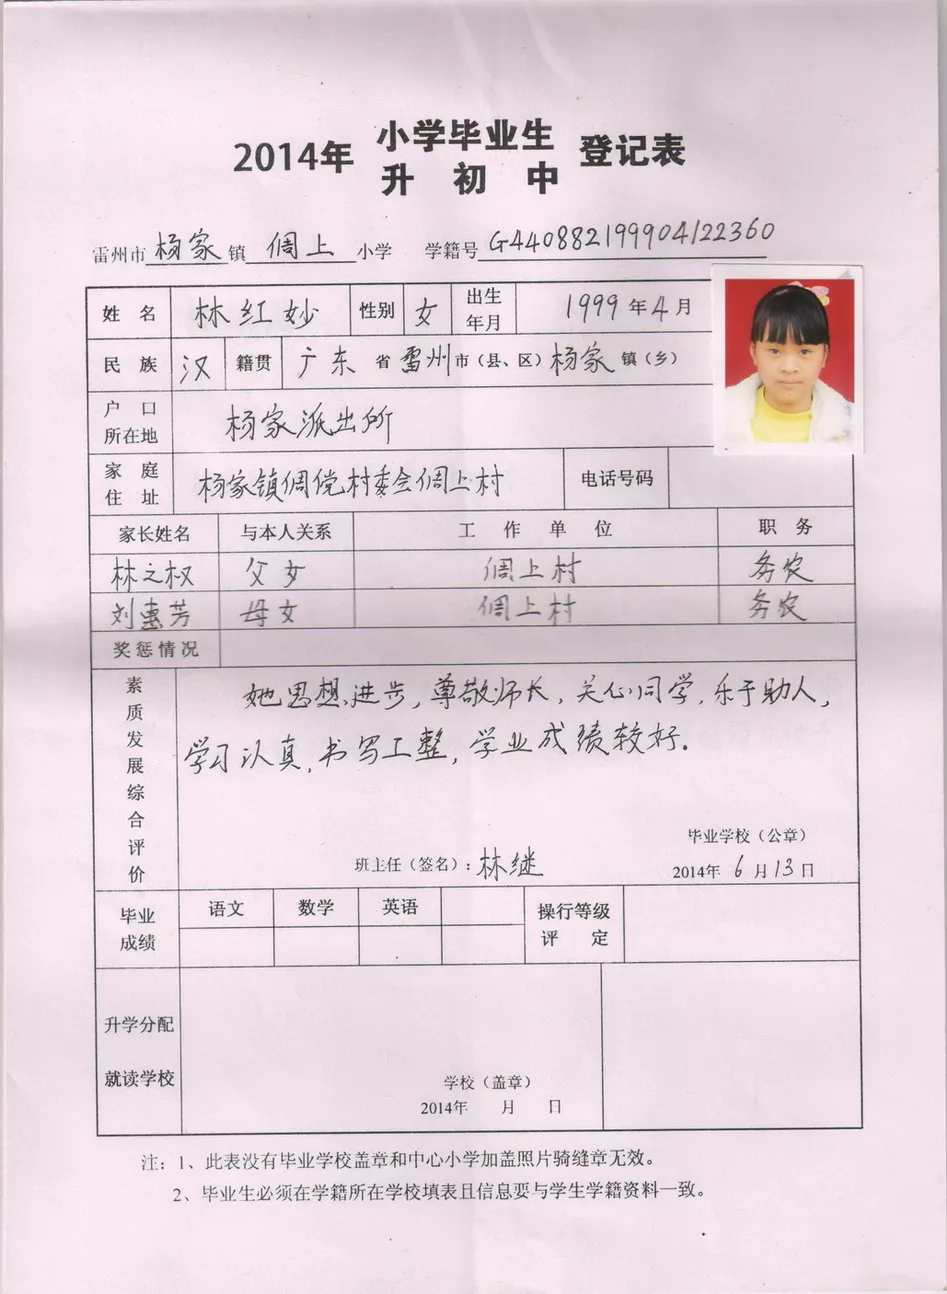 2014年 小学毕业生 登记表
升初中
雷州市杨家镇倜上小学 学籍号 G440882199904122360
姓名 林红妙 性别 女 出生年月 1999年4月
民族 汉 籍贯 广东省雷州市（县、区）杨家镇（乡）
户口所在地 杨家派出所
家庭住址 杨家镇倜党村委会倜上村 电话号码
家长姓名 与本人关系 工作单位 职务
林之权 父女 倜上村 务农
刘惠芳 母女 倜上村 务农
奖惩情况
素质发展综合评价
她思想进步，尊敬师长，关心同学，乐于助人，
学习认真，书写工整，学业成绩较好.
毕业学校（公章）
班主任（签名）：林继 2014年6月13日
毕业成绩 语文 数学 英语 操行等级评定
升学分配
就读学校
学校（盖章）
2014年 月 日
注：1、此表没有毕业学校盖章和中心小学加盖照片骑缝章无效。
2、毕业生必须在学籍所在学校填表且信息要与学生学籍资料一致。